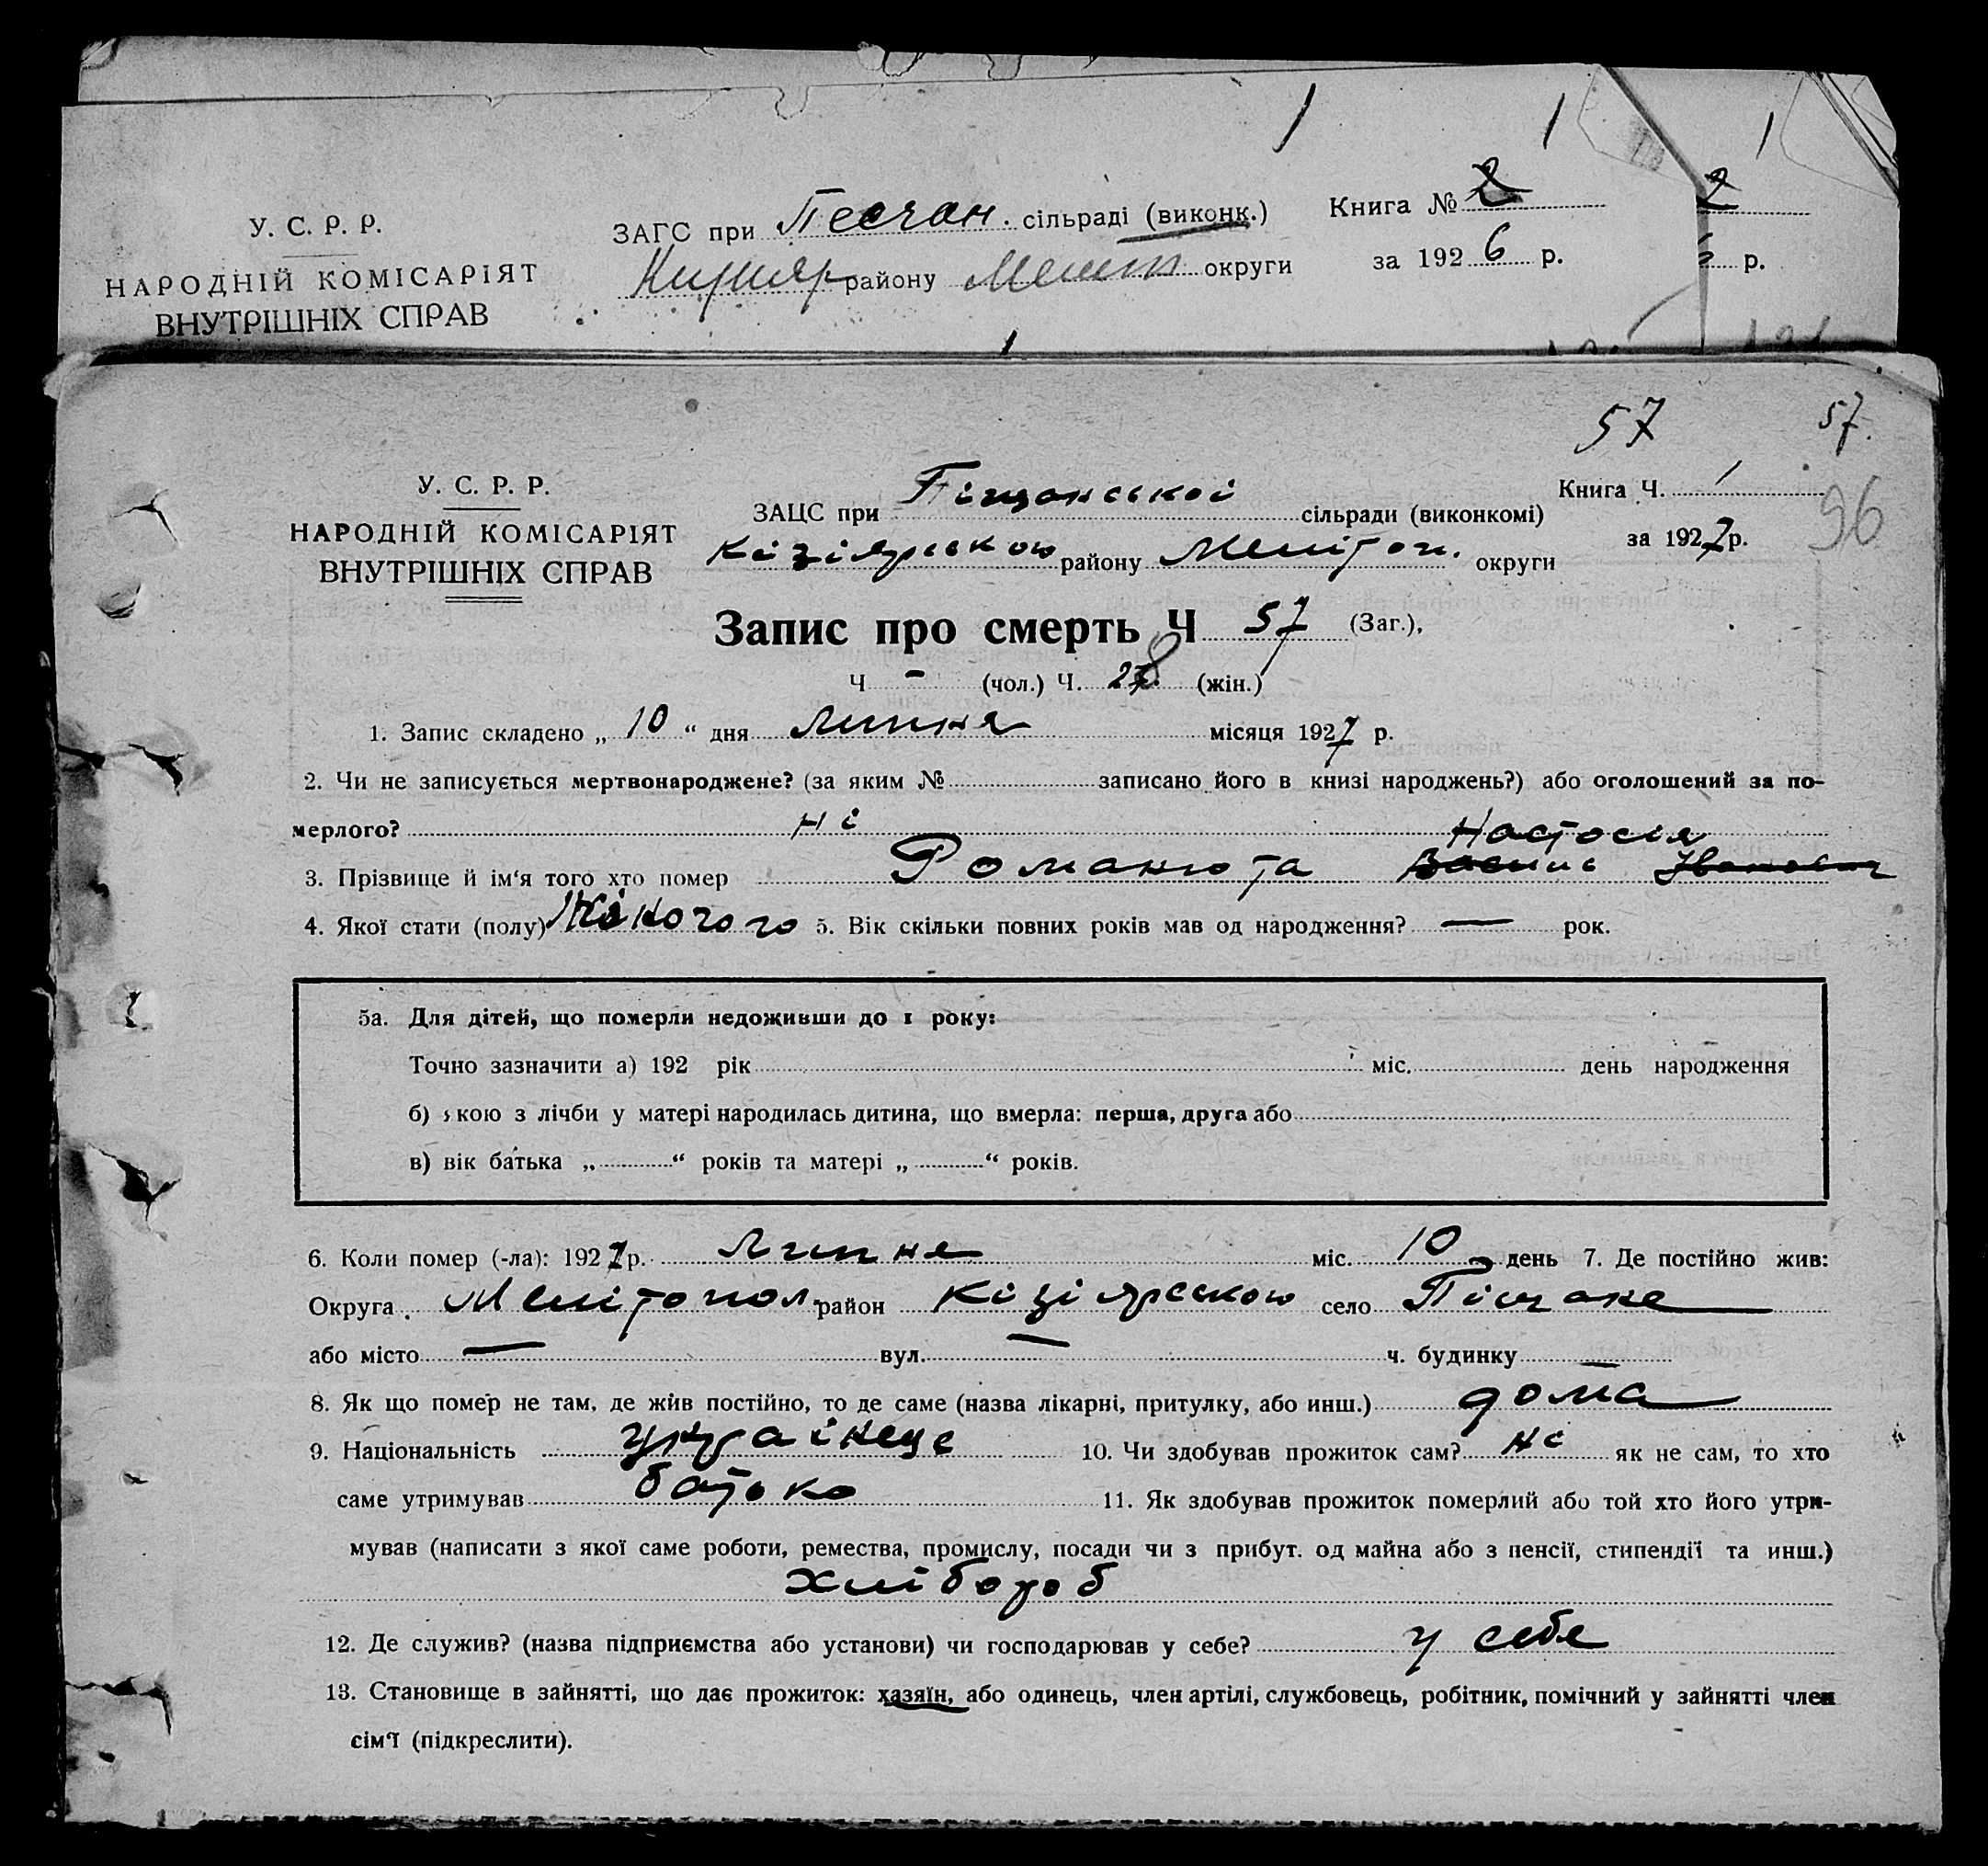 У. С. Р. Р.
НАРОДНІЙ КОМІСАРІЯТ
ВНУТРІШНІХ СПРАВ
ЗАГС при Песчан. сільраді (виконк.)
району Мелит округи
Книга № 2
2
за 192 6 р.
р.
57
57.
96
У. С. Р. Р.
НАРОДНІЙ КОМІСАРІЯТ
ВНУТРІШНІХ СПРАВ
ЗАЦС при Піщанській сільради (виконкомі)
Кізіярською району Мелітоп. округи
Книга Ч. 1
за 1927 р.
Запис про смерть Ч 57 (Заг.),
Ч - (чол.) Ч. 28 (жін.)
1. Запис складено „ 10 “ дня Липня місяця 1927 р.
2. Чи не записується мертвонароджене? (за яким № записано його в книзі народжень?) або оголошений за по-
мерлого? ні
Настосія
3. Прізвище й ім‘я того хто помер Романюта Василь Іванович
4. Якої стати (полу) Жіночого 5. Вік скільки повних років мав од народження? — рок.
5а. Для дітей, що померли недоживши до 1 року:
Точно зазначити а) 192 рік міс. день народження
б) якою з лічби у матері народилась дитина, що вмерла: перша, друга або
в) вік батька „ “ років та матері „ “ років.
6. Коли помер (-ла): 1927 р. Липня міс. 10 день 7. Де постійно жив:
Округа Мелітопол. район Кізіярською село Піщане
або місто — вул. — ч. будинку —
8. Як що помер не там, де жив постійно, то де саме (назва лікарні, притулку, або инш.) дома
9. Національність українець 10. Чи здобував прожиток сам? ні як не сам, то хто
саме утримував батько 11. Як здобував прожиток померлий або той хто його утри-
мував (написати з якої саме роботи, ремества, промислу, посади чи з прибут. од майна або з пенсії, стипендії та инш.)
хлібороб
12. Де служив? (назва підприємства або установи) чи господарював у себе? у себе
13. Становище в зайнятті, що дає прожиток: хазяїн, або одинець, член артілі, службовець, робітник, помічний у зайнятті член
сім‘ї (підкреслити).